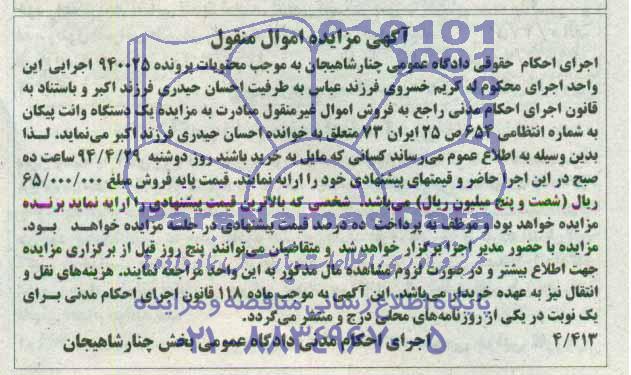 آگهی مزایده اموال منقول
اجرای احکام حقوقی دادگاه عمومی چنارشاهیجان به موجب محتویات پرونده ۹۴۰۰۲۵ اجرایی این
واحد اجرای محکوم له کریم خسروی فرزند عباس به طرفیت احسان حیدری فرزند اکبر و باستناد به
قانون اجرای احکام مدنی راجع به فروش اموال غیرمنقول مبادرت به مزایده یک دستگاه وانت پیکان
به شماره انتظامی ۶۵۴ ص ۲۵ ایران ۷۳ متعلق به خوانده احسان حیدری فرزند اکبر می‌نماید. لـذا
بدین وسیله به اطلاع عموم می‌رساند کسانی که مایل به خرید باشند روز دوشنبه ۹۴/۴/۲۹ ساعت ده
صبح در این اجرا حاضر و قیمتهای پیشنهادی خود را ارایه نمایند. قیمت پایه فروش مبلغ ۶۵/۰۰۰/۰۰۰
ریال (شصت و پنج میلیون ریال) می‌باشد. شخصی که بالاترین قیمت پیشنهادی را ارایه نماید برنـده
مزایده خواهد بود و موظف به پرداخت ده درصد قیمت پیشنهادی در جلسه مزایده خواهـد بـود.
مزایده با حضور مدیر اجرا برگزار خواهد شد و متقاضیان می‌توانند پنج روز قبل از برگزاری مزایده
جهت اطلاع بیشتر و در صورت لزوم مشاهده مال مذکور به این واحد مراجعه نمایند. هزینه‌های نقل و
انتقال نیز به عهده خریدار می‌باشد. این آگهی به موجب ماده ۱۱۸ قانون اجرای احکام مدنی بـرای
یک نوبت در یکی از روزنامه‌های محلی درج و منتشر می‌گردد.
۴/۴۱۳ اجرای احکام مدنی دادگاه عمومی بخش چنارشاهیجان
ParsNamadData
پایگاه اطلاع رسانی مناقصه و مزایده
۰۲۱-۸۸۳۴۹۶۷۰-۵